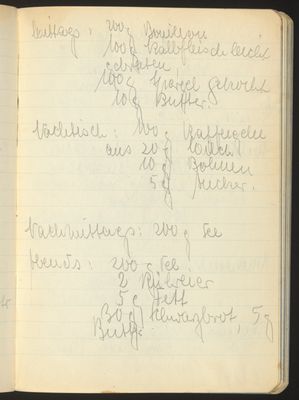 Mittags: 200 g Bouillon
100 g Kalbfleisch leicht
gebraten
100 g Spargel gekocht
10 g Butter.
Nachtisch: 100 g
aus 20 g
10 g Bohnen
5 g Zucker.
Nachmittags: 200 g Tee
Abends: 200 g Tee
2 Rühreier
5 g Fett
30 g Schwarzbrot, 5 g
Butter